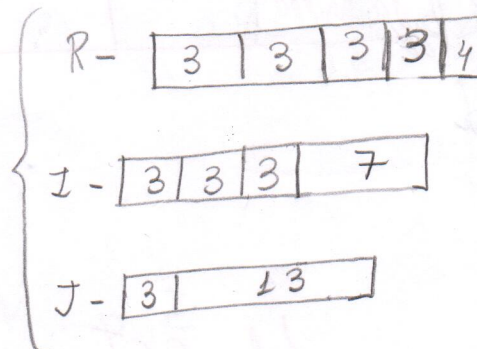 R- 3 3 3 3 4
I- 3 3 3 7
J- 3 13